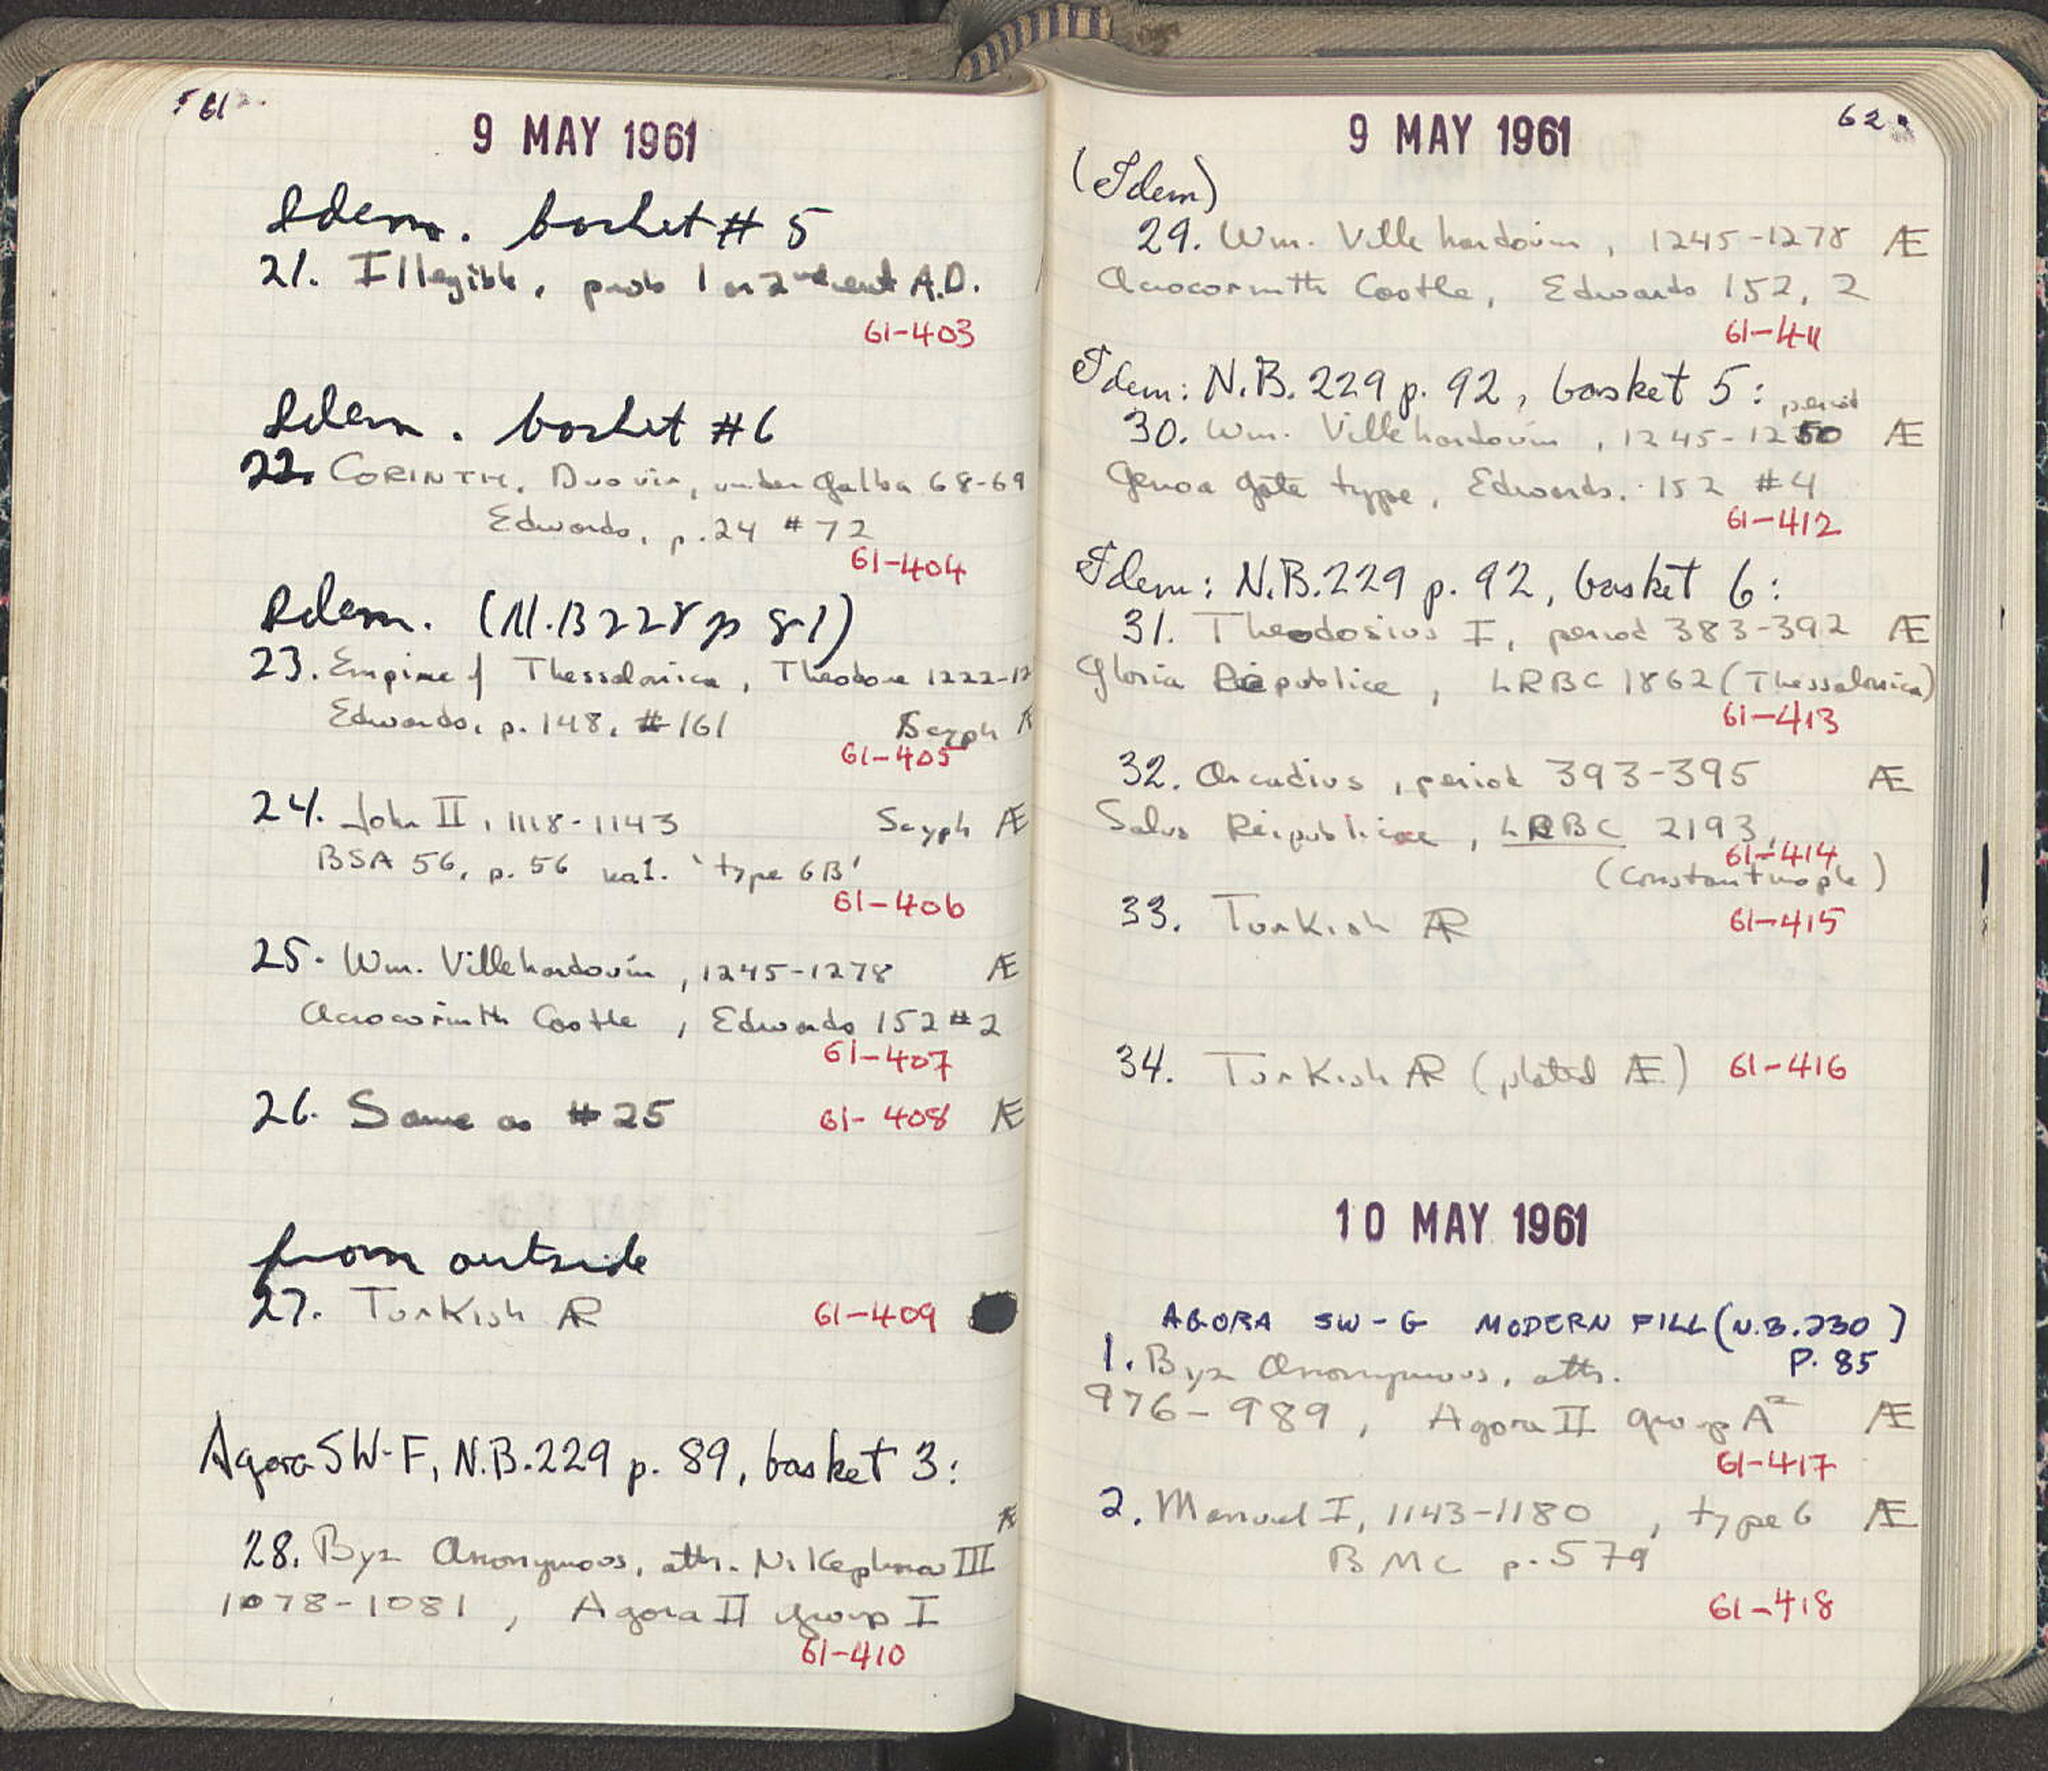 61
9 MAY 1961
Idem. basket # 5
21. Illegible, prob 1 or 2nd cent A.D.
61-403
Idem. basket #6
22. CORINTH. Duovir, under Galba 68-69
Edwards, p.24 #72
61-404
Idem. (N.B 228 p 81)
23. Empire of Thessalonica, Theodore 1222-12
Edwards, p. 148, #161 Scyph
61-405
24. John II, 1118-1143 Scyph Æ
BSA 56, p. 56 'type 6B'
61-406
25. Wm. Villehardouin, 1245-1278 Æ
Acrocorinth Castle, Edwards 152 #2
61-407
26. Same as #25 61-408 Æ
from outside
27. Turkish AR 61-409
Agora SW-F, N.B.229 p. 89, basket 3:
Æ
28. Byz Anonymous, attr. Nikephoros III
1078-1081, Agora II group I
61-410
62
9 MAY 1961
(Idem)
29. Wm. Villehardouin, 1245-1278 Æ
Acrocorinth Castle, Edwards 152, 2
61-411
Idem: N.B. 229 p. 92, basket 5:
period
30. Wm. Villehardouin, 1245-1250 Æ
Genoa Gate type, Edwards. 152 #4
61-412
Idem: N.B.229 p. 92, basket 6:
31. Theodosius I, period 383-392 Æ
Gloria Reipublice, LRBC 1862 (Thessalonica)
61-413
32. Arcadius, period 393-395 Æ
Salus Reipublicae, LRBC 2193,
61-414
(Constantinople)
33. Turkish AR 61-415
34. Turkish AR (plated Æ) 61-416
10 MAY 1961
AGORA SW-G MODERN FILL (N.B.230)
P. 85
1. Byz Anonymous, attr.
976-989, Agora II group A² Æ
61-417
2. Manuel I, 1143-1180, type 6 Æ
BMC p. 579
61-418